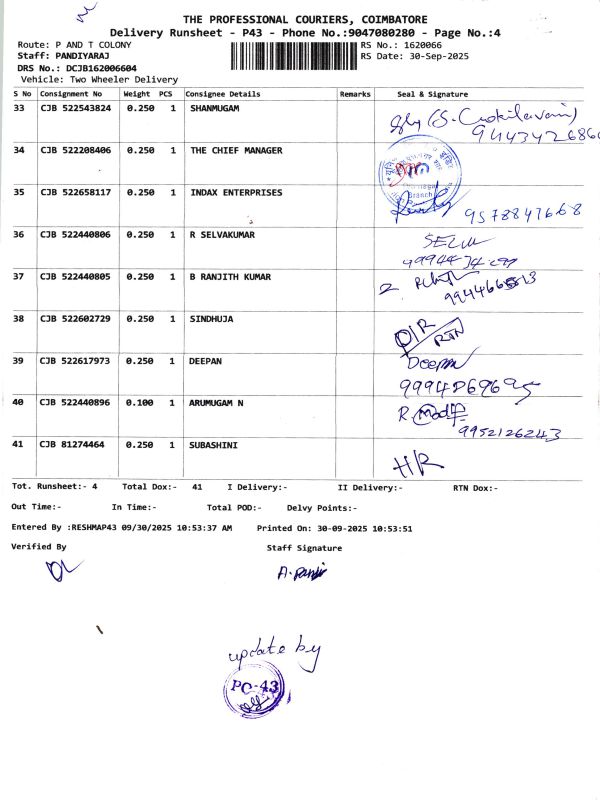 THE PROFESSIONAL COURIERS, COIMBATORE
Delivery Runsheet - P43 - Phone No.:9047080280 - Page No.:4
Route: P AND T COLONY RS No.: 1620066
Staff: PANDIYARAJ RS Date: 30-Sep-2025
DRS No.: DCJB162006604
Vehicle: Two Wheeler Delivery
S No Consignment No Weight PCS Consignee Details Remarks Seal & Signature
33 CJB 522543824 0.250 1 SHANMUGAM
34 CJB 522208406 0.250 1 THE CHIEF MANAGER
Branch
35 CJB 522658117 0.250 1 INDAX ENTERPRISES
9578847668
36 CJB 522440806 0.250 1 R SELVAKUMAR
37 CJB 522440805 0.250 1 B RANJITH KUMAR
38 CJB 522602729 0.250 1 SINDHUJA
RTN
39 CJB 522617973 0.250 1 DEEPAN Deepan
9994869695
40 CJB 522440896 0.100 1 ARUMUGAM N
9952126243
41 CJB 81274464 0.250 1 SUBASHINI
Tot. Runsheet:- 4 Total Dox:- 41 I Delivery:- II Delivery:- RTN Dox:-
Out Time:- In Time:- Total POD:- Delvy Points:-
Entered By :RESHMAP43 09/30/2025 10:53:37 AM Printed On: 30-09-2025 10:53:51
Verified By Staff Signature
update by
PC-43